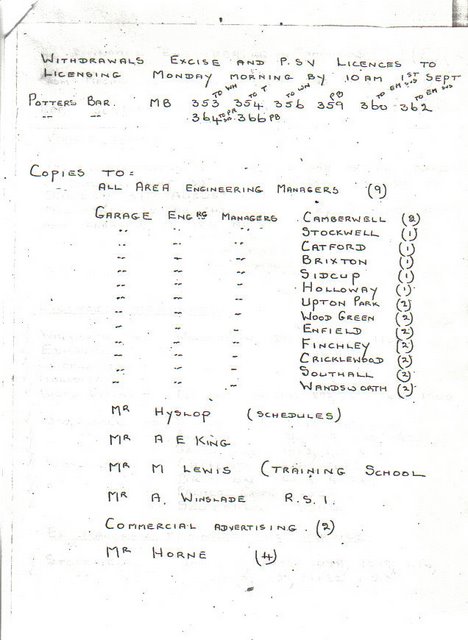 WITHDRAWALS EXCISE AND P.S.V LICENCES TO
LICENSING MONDAY MORNING BY 10AM 1ST SEPT
TO WH TO T TO WN PB TO EM SUS TO EM SUS
POTTERS BAR. MB 353 354 356 359 360 362
" " 364 366 PB
COPIES TO:
ALL AREA ENGINEERING MANAGERS (9)
GARAGE ENGRG MANAGERS CAMBERWELL (2)
" " " STOCKWELL (1)
" " " CATFORD (1)
" " " BRIXTON (1)
" " " SIDCUP (1)
" " " HOLLOWAY (1)
" " " UPTON PARK (2)
" " " WOOD GREEN (2)
" " " ENFIELD (2)
" " " FINCHLEY (2)
" " " CRICKLEWOOD (2)
" " " SOUTHALL (2)
" " " WANDSWORTH (2)
MR HYSLOP (SCHEDULES)
MR A E KING
MR M LEWIS (TRAINING SCHOOL
MR A. WINSLADE R.S.I.
COMMERCIAL ADVERTISING. (2)
MR HORNE (4)